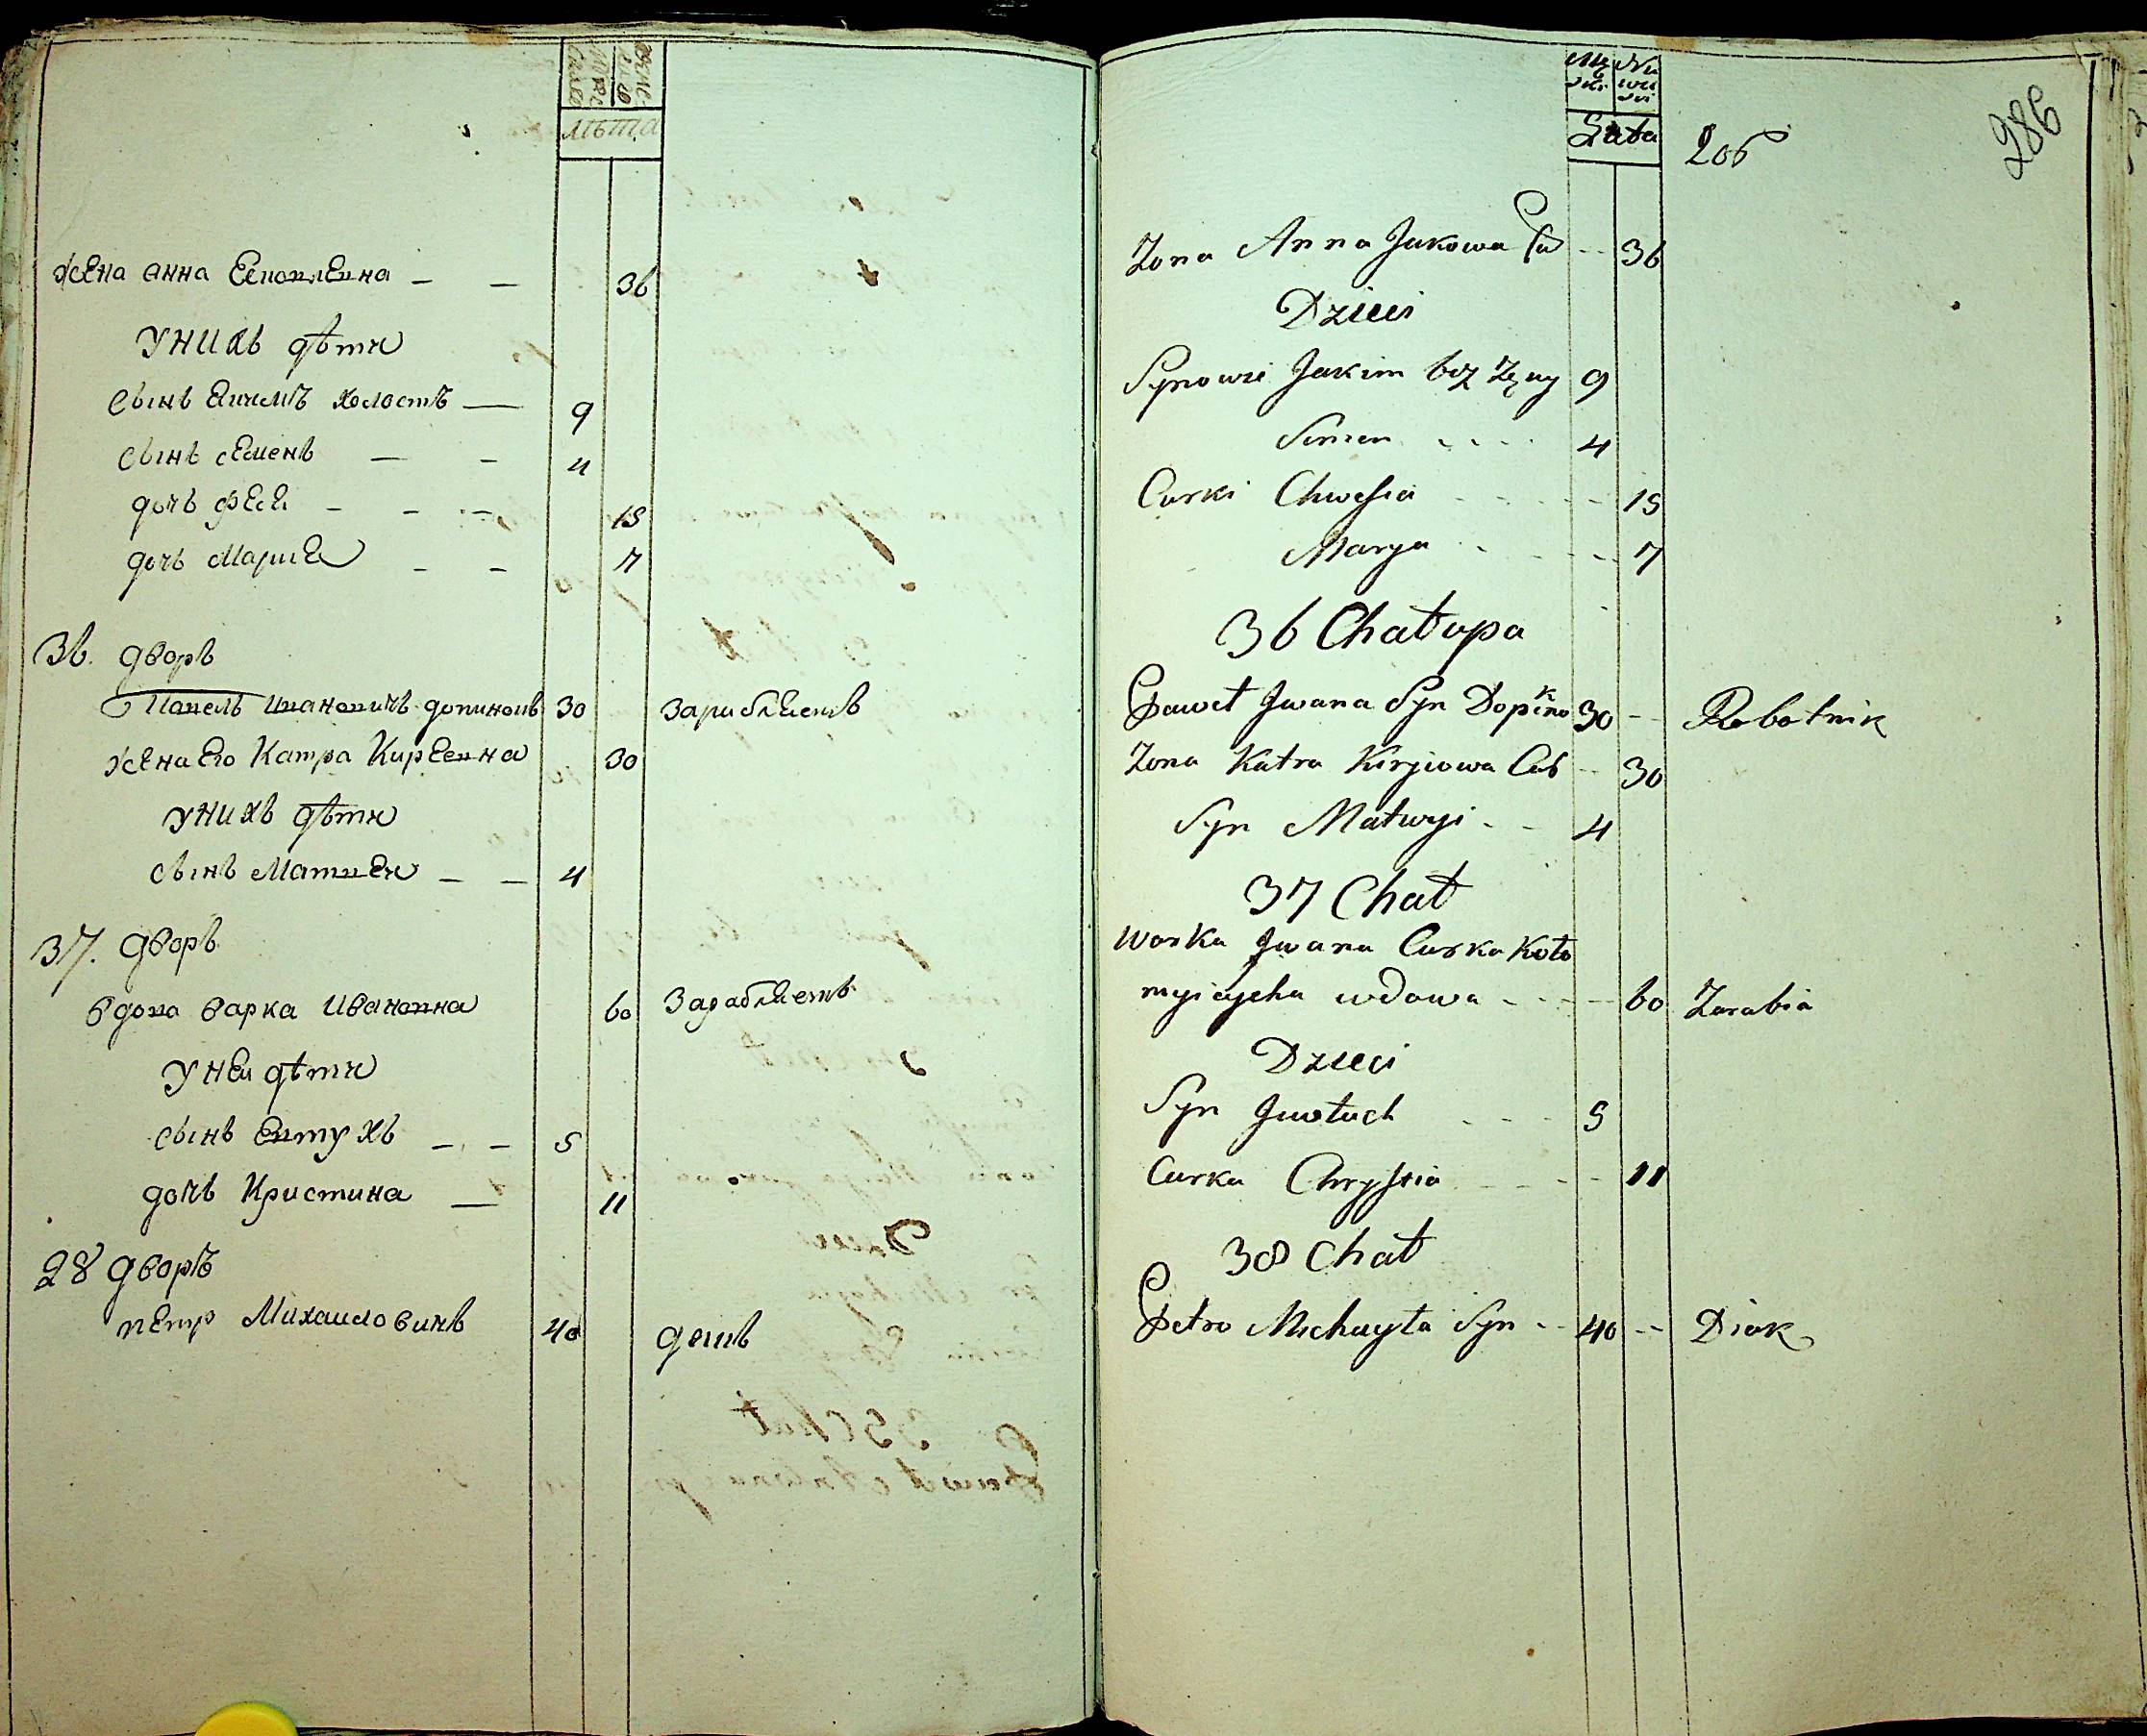 лѣта
жена анна Якововна 36
У нихъ дѣти
сынъ Якимъ холостъ 9
сынъ семенъ 4
дочь феся 15
дочь Мария 7
36. дворъ
Павелъ Ивановичъ допиновъ 30 зарабляетъ
жена его Катра Киряевна 30
У нихъ дѣти
сынъ Матвей 4
37. дворъ
вдова варка Ивановна 60 Зарабляетъ
У неи дѣти
сынъ Евтухъ 5
дочь Кристина 11
28 дворъ
петр Михаиловичъ 40 дякъ
Lata
286
Zona Anna Jakowa 36
Dzieci
Synowie Jakim bez Zęny 9
Semen 4
Curki Chwesia 15
Marya 7
36 Chałupa
Paweł Jwana Syn Dopinko 30 Robotnik
Zona Katra Kirjiowa Cur 30
Syn Matwyi 4
37 Chał
Warka Jwana Curka Koło
myiczycha wdowa 60 Zarabia
Dzieci
Syn Jwtuch 5
Curka Chrystia 11
38 Chał
Petro Michayła Syn 40 Diak